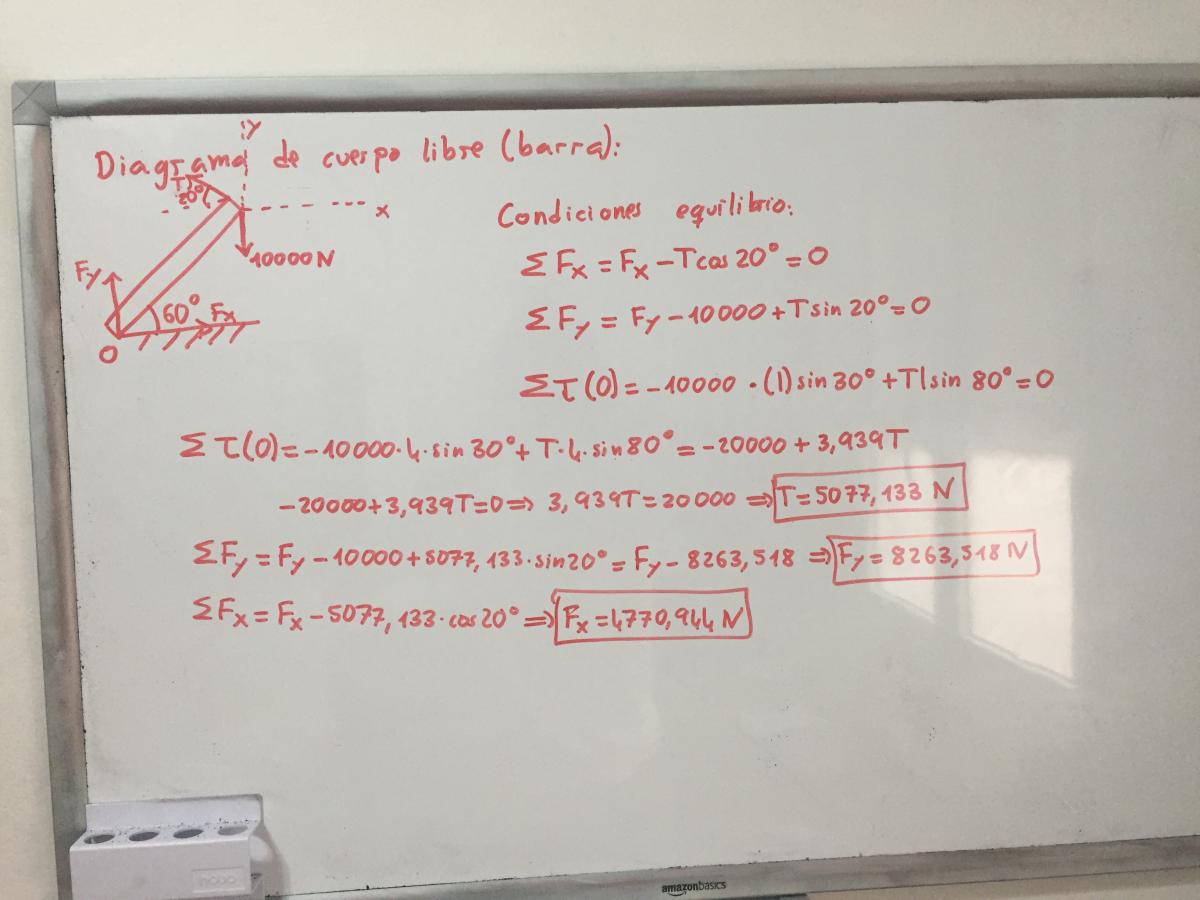 y
Diagrama de cuerpo libre (barra):
T
20°
x
10000 N
Fy
60° Fx
O
Condiciones equilibrio:
ΣFx = Fx - Tcos 20° = 0
ΣFy = Fy - 10000 + T sin 20° = 0
Στ(0) = -10000 · (l) sin 30° + Tl sin 80° = 0
Στ(0) = -10000·4·sin 30° + T·4·sin 80° = -20000 + 3,939T
-20000 + 3,939T = 0 => 3,939T = 20000 => T = 5077,133 N
ΣFy = Fy - 10000 + 5077,133·sin 20° = Fy - 8263,518 => Fy = 8263,518 N
ΣFx = Fx - 5077,133·cos 20° => Fx = 4770,944 N
nobo
amazonbasics